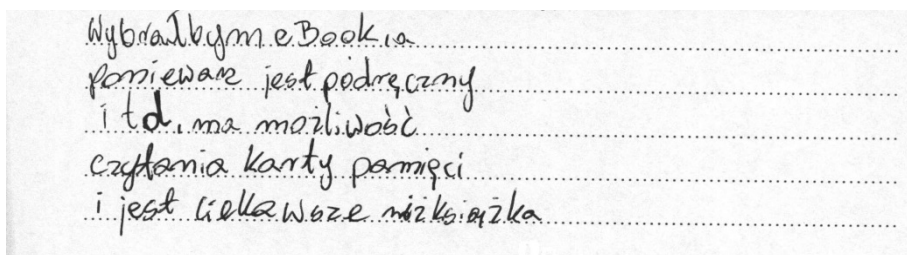 Wybrałbym eBook,a
ponieważ jest podręczny
i td, ma możliwość
czytania karty pamięci
i jest ciekawsze niż książka